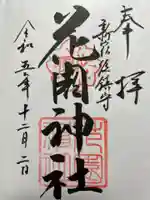 奉拝
新宿総鎮守
花園神社
令和五年十二月二日